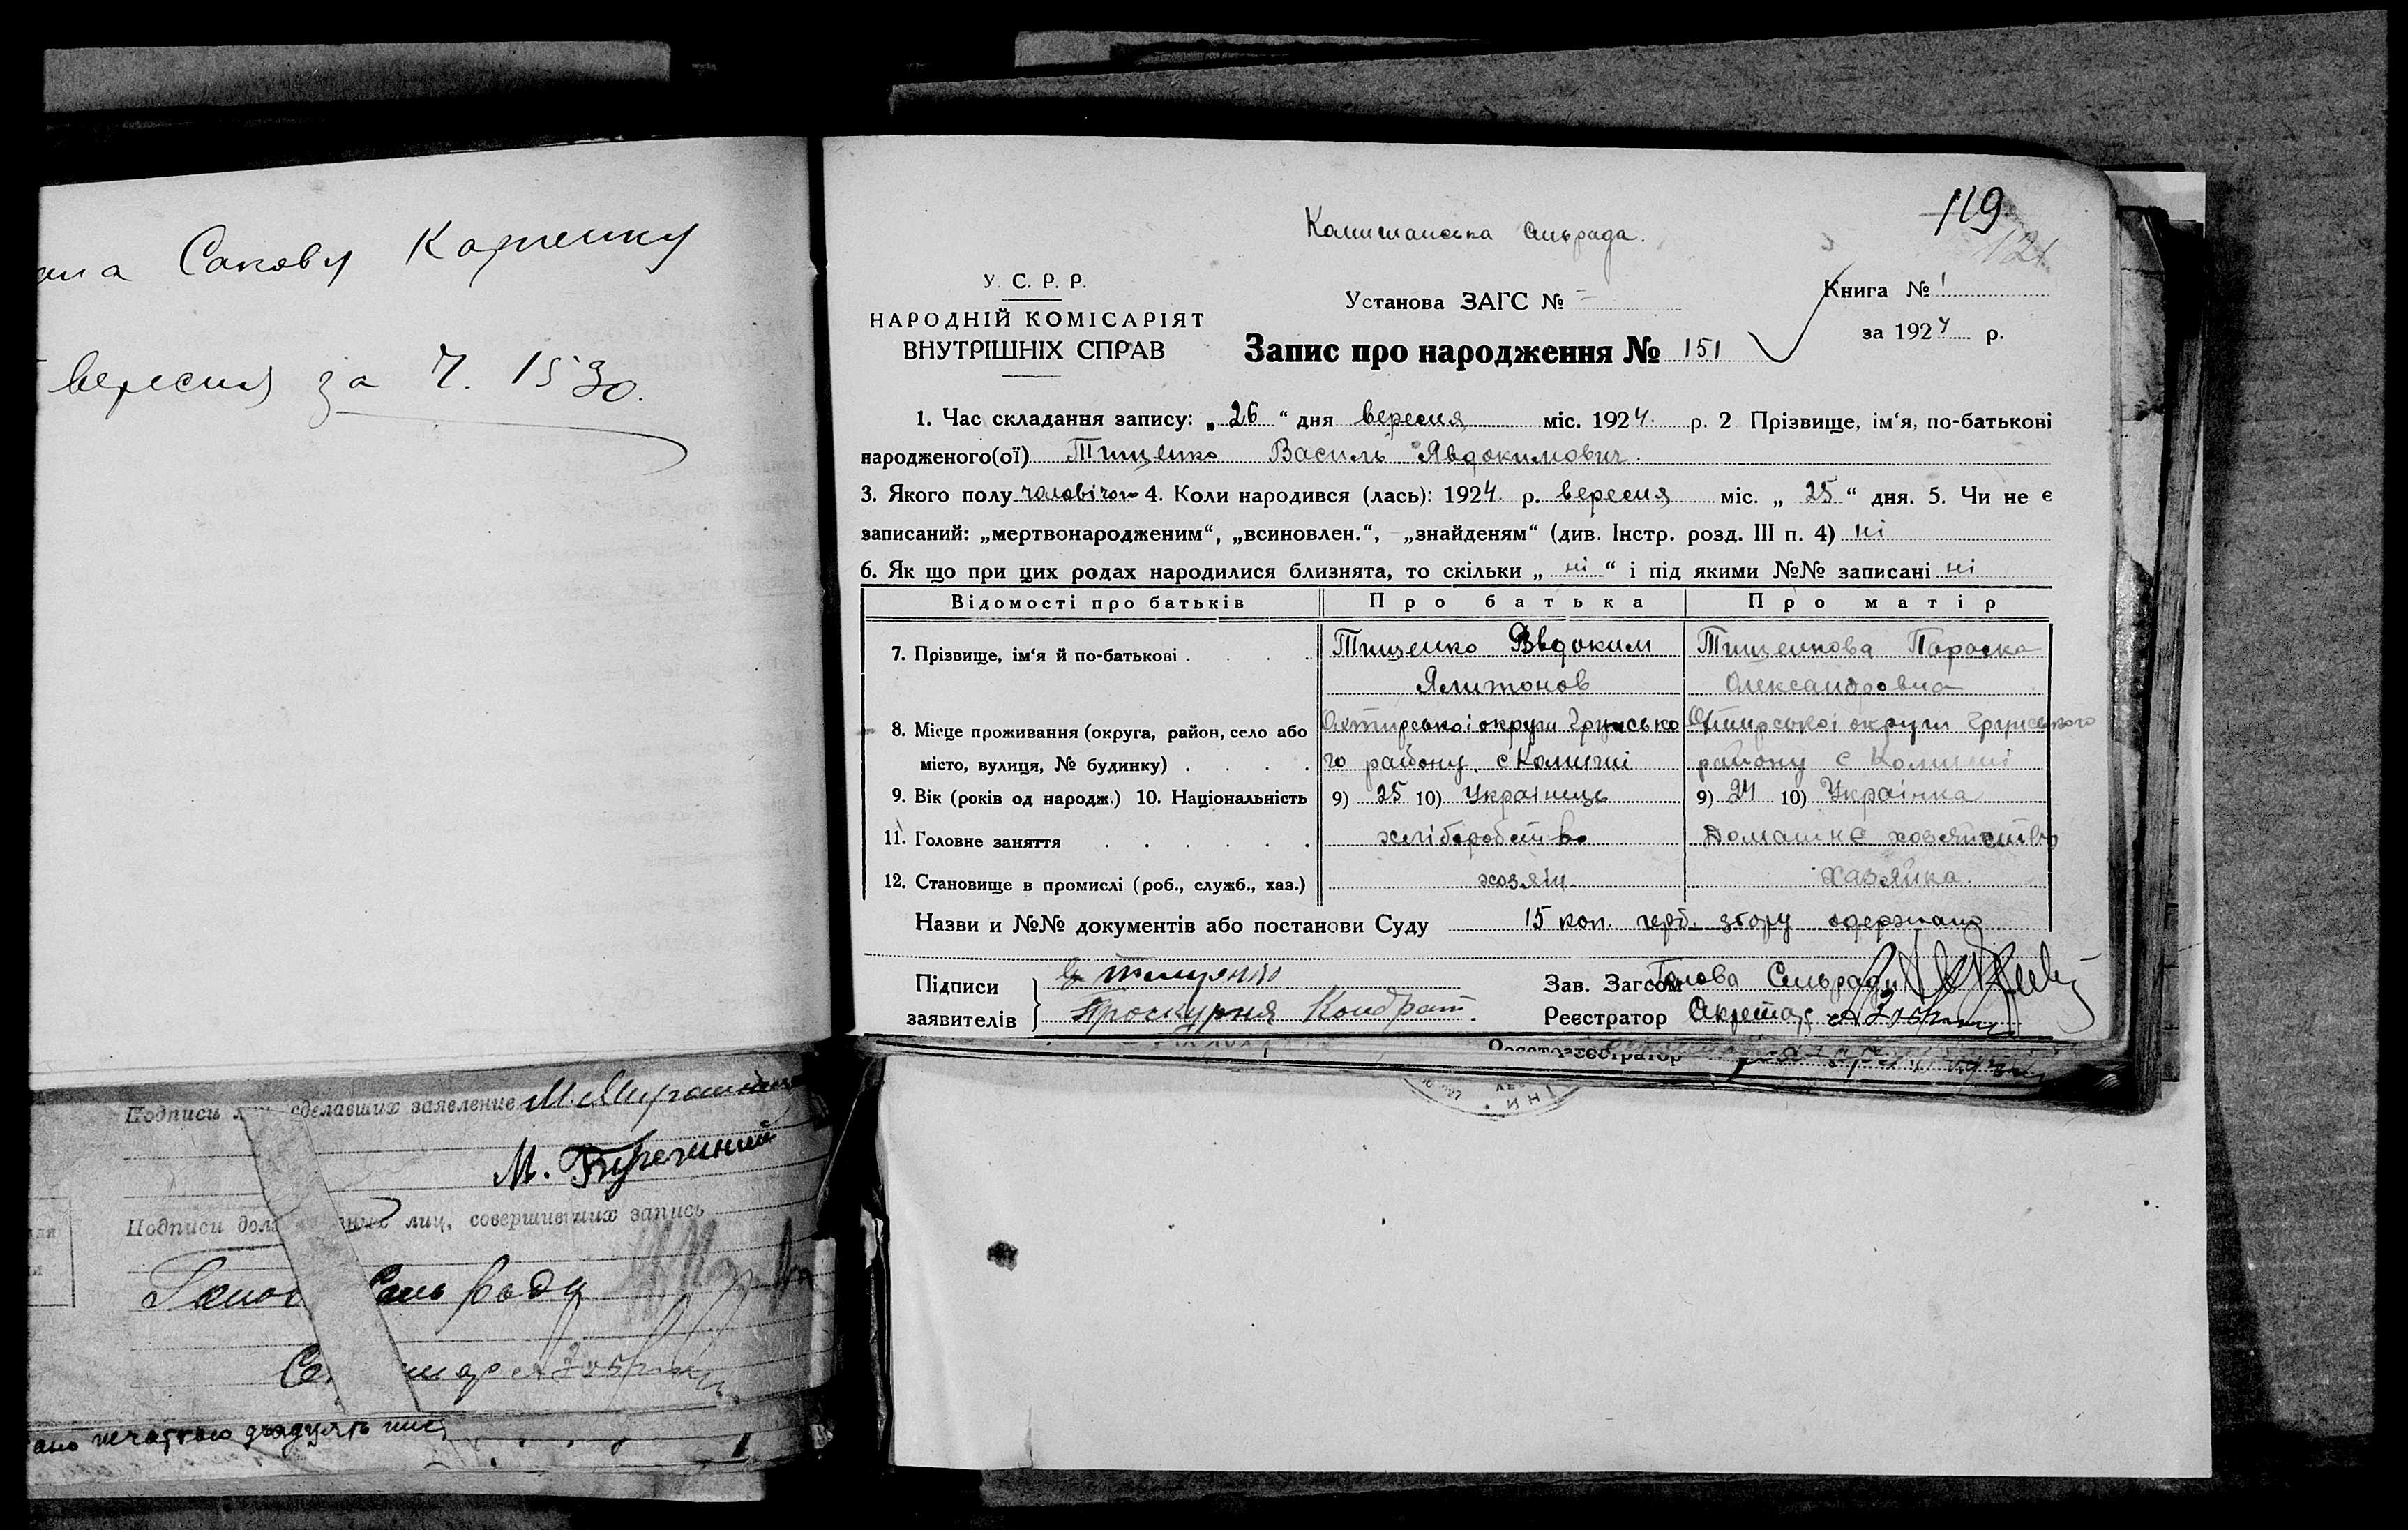 Сакову Карпенку
вересня за Ч. 1530.
Подписи сделавших заявление
М. Бережний
Подписи лиц, совершивших запись
Голов Сель ради
печаткою двадцять
119
121
Комишанська сільрада.
У. С. Р. Р.
НАРОДНІЙ КОМІСАРІЯТ
ВНУТРІШНІХ СПРАВ
Установа ЗАГС № –
Запис про народження № 151
Книга № 1
за 1924 р.
1. Час складання запису: „ 26 “ дня вересня міс. 1924. р. 2 Прізвище, ім‘я, по-батькові
народженого(ої) Тищенко Василь Явдокимович.
3. Якого полу чоловічого 4. Коли народився (лась): 1924 р. вересня міс. „ 25 “ дня. 5. Чи не є
записаний: „мертвонародженим“, „всиновлен.“, „знайденям“ (див. Інстр. розд. III п. 4) ні
6. Як що при цих родах народилися близнята, то скільки „ ні “ і під якими №№ записані ні
Відомості про батьків Про батька Про матір
7. Прізвище, ім‘я й по-батькові . . . . Тищенко Явдоким Тищенкова Параска
Ялитонов Олександровна
8. Місце проживання (округа, район, село або Охтирської округи Грунсько Охтирської округи Грунського
місто, вулиця, № будинку) . . . . го району. с Комиші району с Комиші
9. Вік (років од народж.) 10. Національність 9) 25 10) Українець 9) 24 10) Українка
11. Головне заняття . . . . . . хліборобство Домашнє хозяйство
12. Становище в промислі (роб., служб., хаз.) хозяїн. Хазяйка.
Назви и №№ документів або постанови Суду 15 коп. герб. збору одержано
Підписи
заявителів
Тищенко
Проскурня Кондрат.
Зав. Загсом Голова Сельради
Реєстратор Секретар